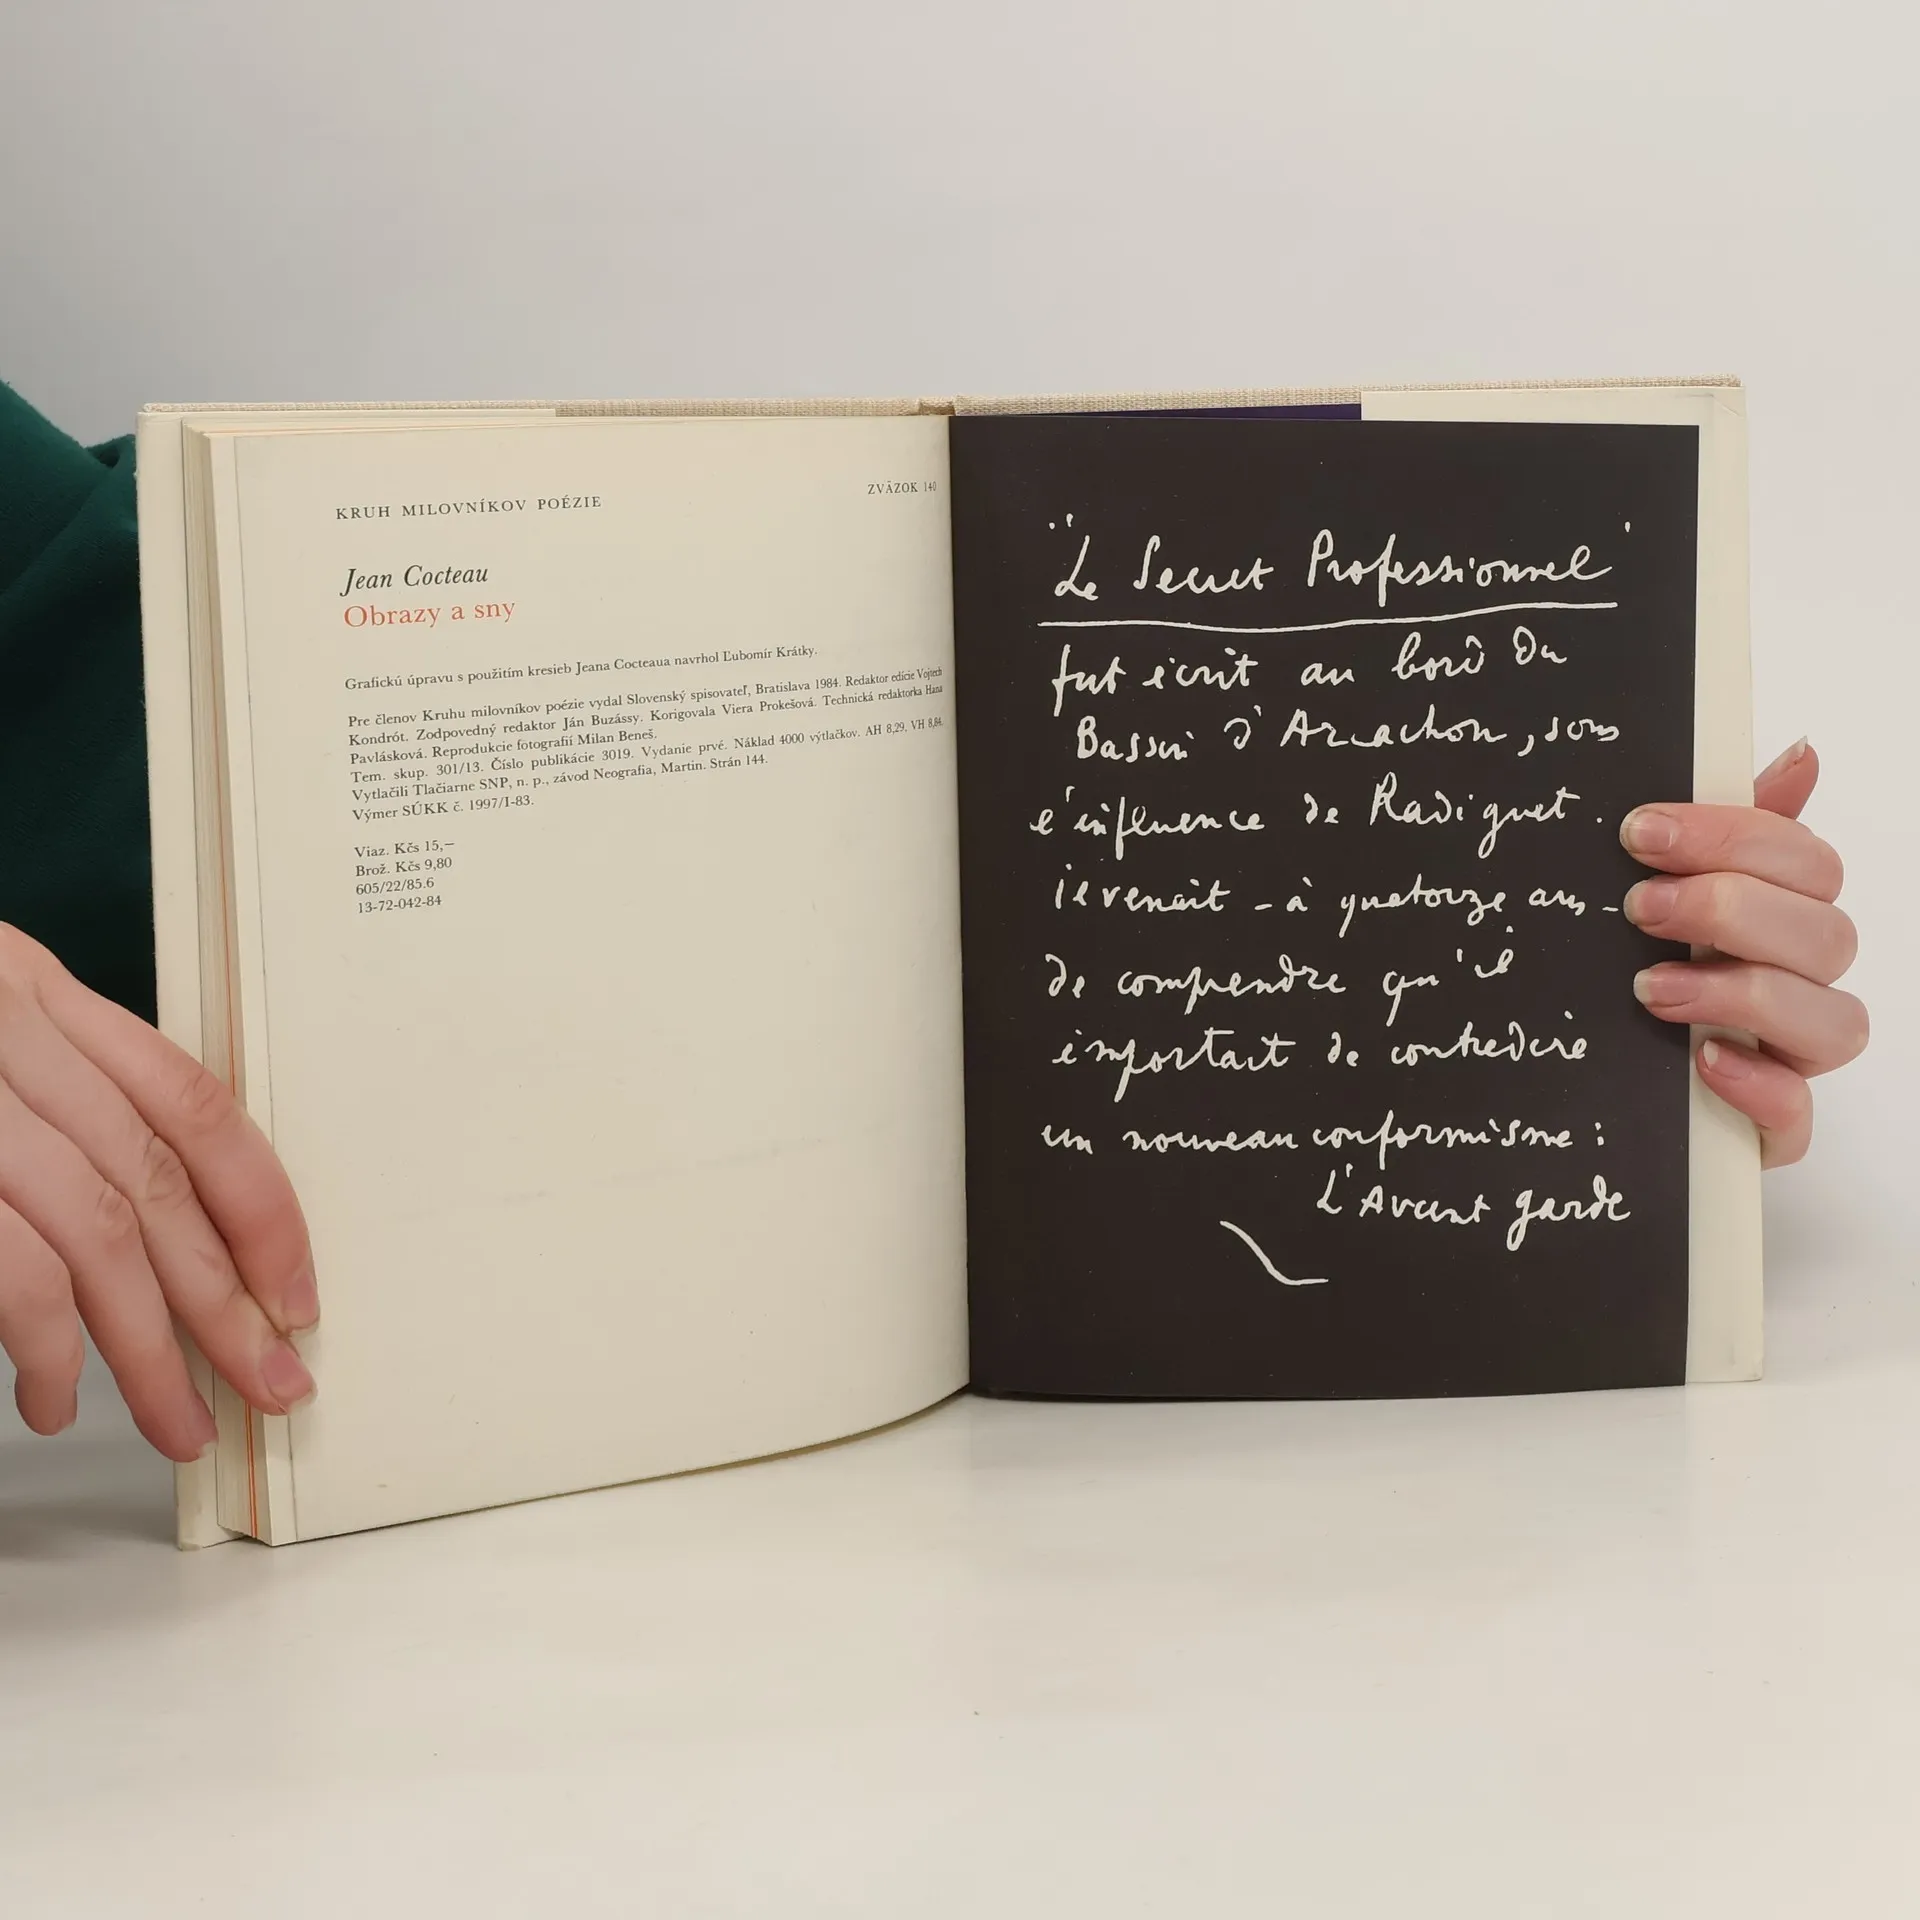 KRUH MILOVNÍKOV POÉZIE
ZVÄZOK 140
Jean Cocteau
Obrazy a sny
Grafickú úpravu s použitím kresieb Jeana Cocteaua navrhol Ľubomír Krátky.
Pre členov Kruhu milovníkov poézie vydal Slovenský spisovateľ, Bratislava 1984. Redaktor edície Vojtech
Kondrót. Zodpovedný redaktor Ján Buzássy. Korigovala Viera Prokešová. Technická redaktorka Hana
Pavlásková. Reprodukcie fotografií Milan Beneš.
Tem. skup. 301/13. Číslo publikácie 3019. Vydanie prvé. Náklad 4000 výtlačkov. AH 8,29, VH 8,84.
Vytlačili Tlačiarne SNP, n. p., závod Neografia, Martin. Strán 144.
Výmer SÚKK č. 1997/I-83.
Viaz. Kčs 15,—
Brož. Kčs 9,80
605/22/85.6
13-72-042-84
"Le Secret Professionnel"
fut écrit au bord du
Bassin d'Arcachon, sous
l'influence de Radiguet.
il venait - à quatorze ans -
de comprendre qu'il
importait de contredire
un nouveau conformisme :
L'Avant garde